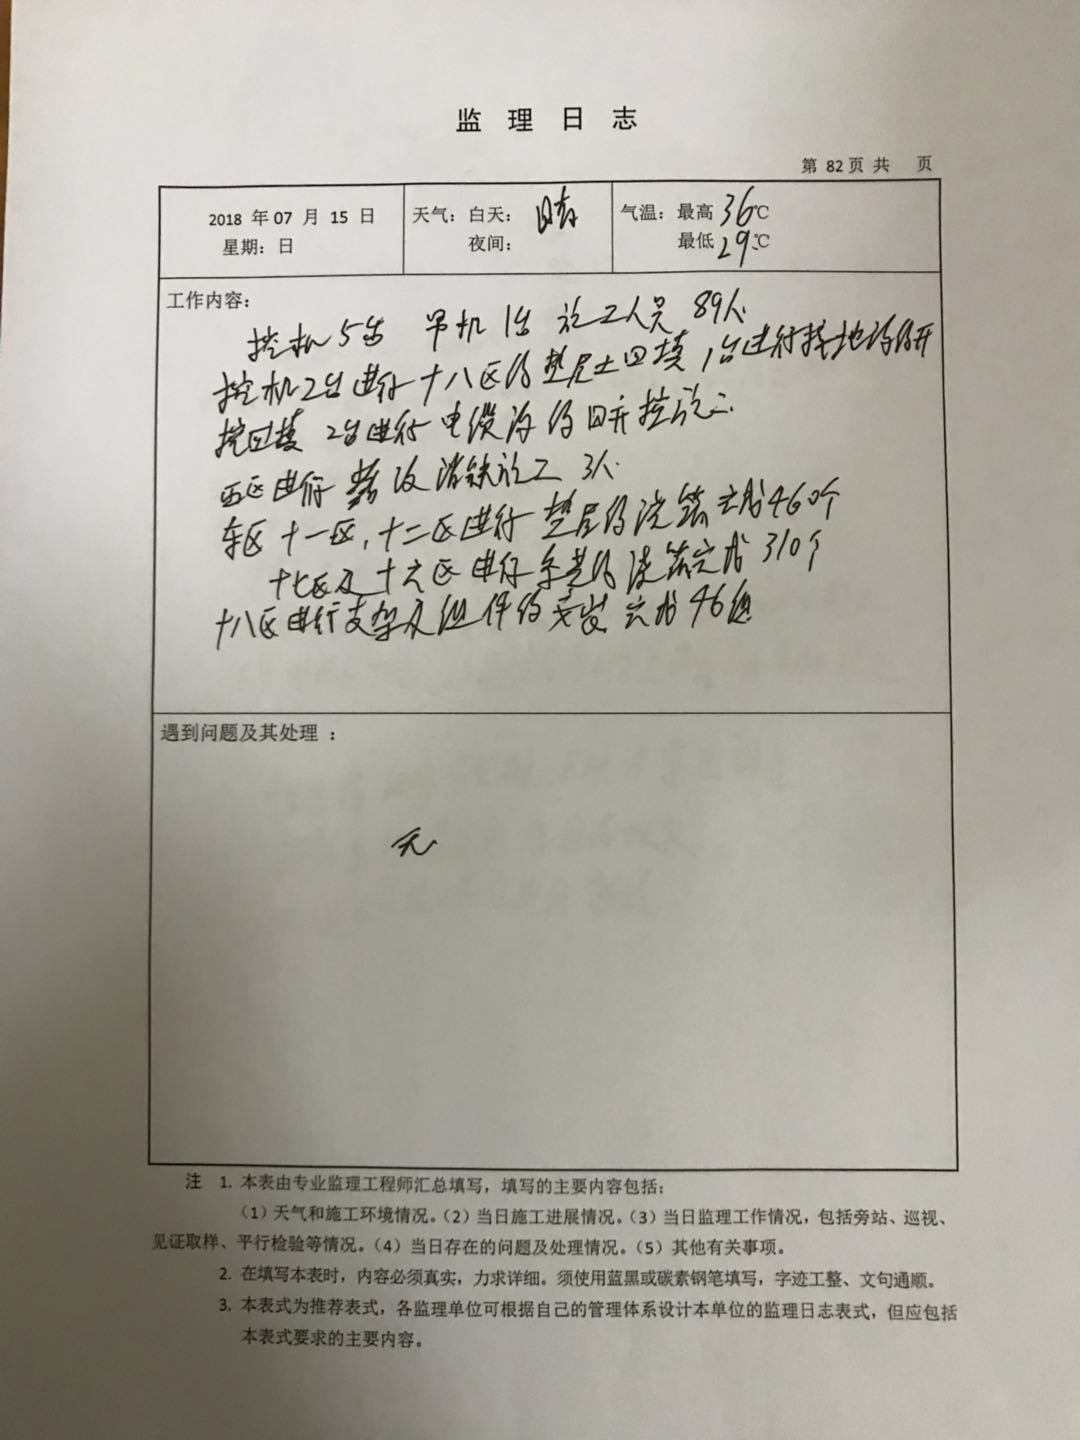 监理日志
第 82 页 共 页
2018 年 07 月 15 日
星期：日
天气：白天：晴
夜间：
气温：最高 36℃
最低 29℃
工作内容：
挖机5台 吊机1台 施工人员 89人
挖机2台进行十八区的垫层土回填，1台进行接地沟的开
挖回填 2台进行电缆沟的开挖施工
西区进行 施工 3人
东区十一区，十二区进行垫层的浇筑完成460个
十七区及十六区进行 的浇筑完成310个
十八区进行支架及组件的安装 完成46组
遇到问题及其处理 ：
无
注 1. 本表由专业监理工程师汇总填写，填写的主要内容包括：
（1）天气和施工环境情况。（2）当日施工进展情况。（3）当日监理工作情况，包括旁站、巡视、
见证取样、平行检验等情况。（4）当日存在的问题及处理情况。（5）其他有关事项。
2. 在填写本表时，内容必须真实，力求详细。须使用蓝黑或碳素钢笔填写，字迹工整、文句通顺。
3. 本表式为推荐表式，各监理单位可根据自己的管理体系设计本单位的监理日志表式，但应包括
本表式要求的主要内容。